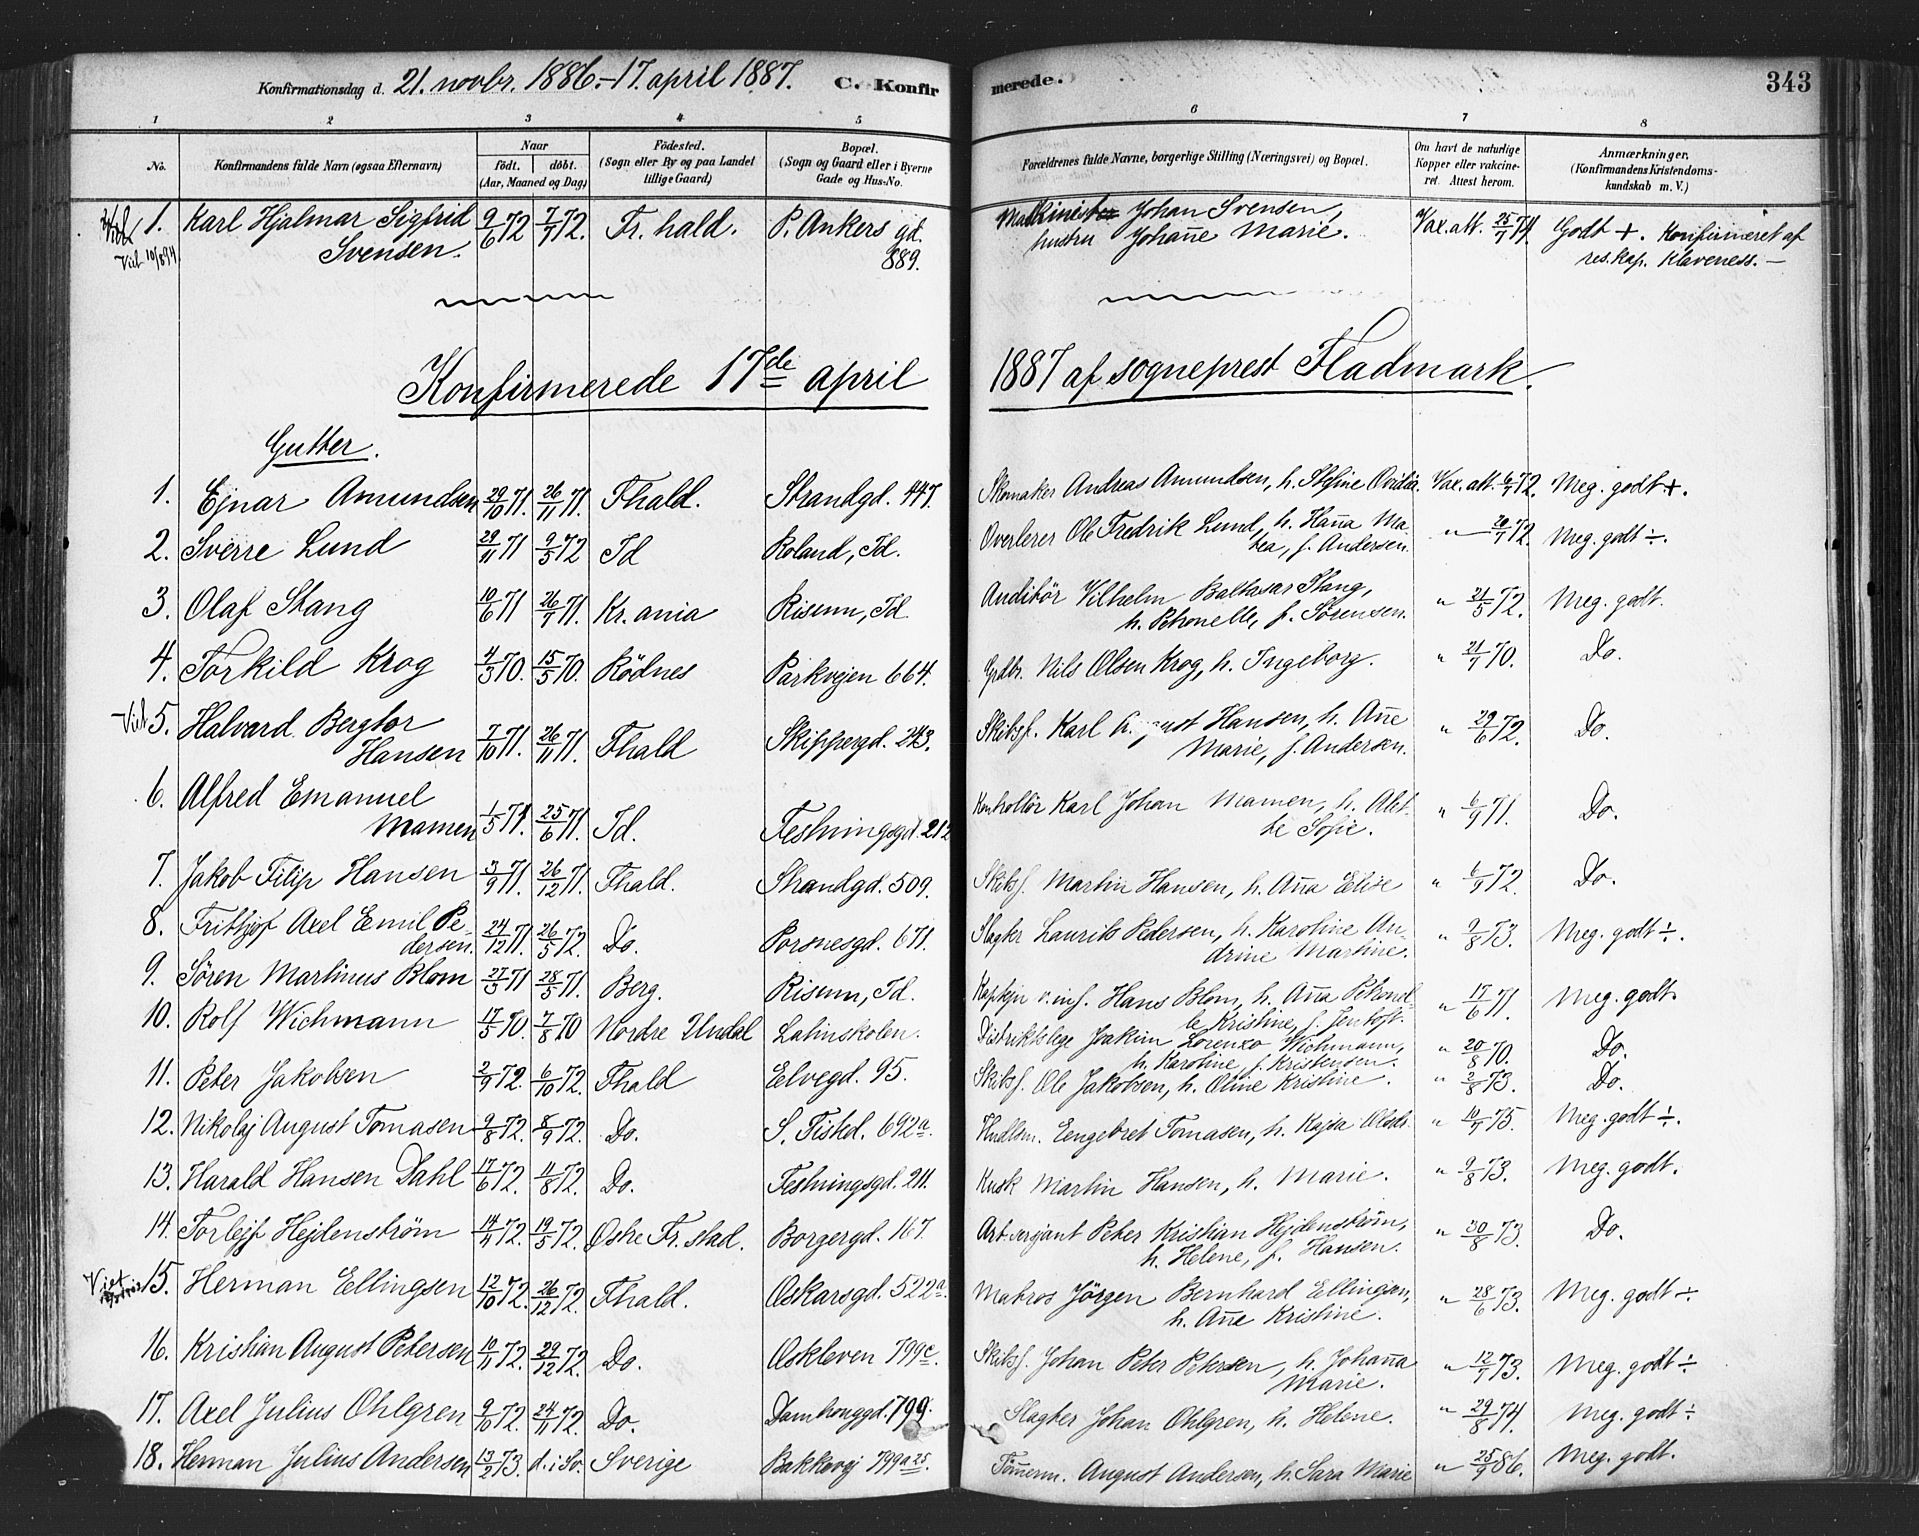 Konfirmationsdag d. 21. novbr. 1886.-17. april 1887. C. Konfirmerede. 343
1 2 3 4 5 6 7 8
No. Konfirmandens fulde Navn (ogsaa Efternavn) Naar født. døbt. (Aar, Maaned og Dag) Fødested. (Sogn eller By og paa Landet tillige Gaard) Bopæl. (Sogn og Gaard eller i Byerne Gade og Hus-No. Forældrenes fulde Navne, borgerlige Stilling (Næringsvei) og Bopæl. Om havt de naturlige Kopper eller vakcineret. Attest herom. Anmærkninger. (Konfirmandens Kristendomskundskab m. V.)
1. Karl Hjalmar Sigfrid 9/6 72 7/7 72. Fr. hald. P. Ankers gd. Maskinister Johan Svensen, Vax. att. 25/7 74 Godt +. Konfirmeret af
Vid 10/8 94 Svensen. 889. hustru Johan̄e Marie. res. kap. Klaveness. —
Konfirmerede 17de april 1887 af sogneprest Fladmark.
Gutter.
1. Ejnar Amundsen 29/10 71. 26/11 71. Fhald. Strandgd. 447. Skomaker Andreas Amundsen, h. Stefine Ovidia. Vax. att. 6/7 72. Meg. godt +.
2. Sverre Lund 29/11 71 9/5 72 Id Roland, Id. Overlerer Ole Fredrik Lund, h. Han̄a Ma-
tea, f. Andersen. " 20/7 72. Meg. godt ÷.
3. Olaf Stang 10/6 71 26/7 71. Kr.ania Risum, Id Auditör Vilhelm Baltasar Stang,
h. Petronelle, f. Sörensen. " 21/5 72. Meg. godt.
4. Torkild Krog 4/3 70. 15/5 70. Rödnes Parkvejen 664. Grdbr. Nils Olsen Krog, h. Ingeborg. " 21/7 70. Do.
5. Halvard Bergtor Skibsf. Karl August Hansen, h. An̄e
Hansen 7/10 71. 26/11 71. Fhald Skippergd. 243. Marie, f. Andersen. " 29/6 72. Do.
6. Alfred Emanuel Kontrollör Karl Johan Mamen, h. Alet-
Mamen 1/5 71. 25/6 71. Id. Festningsgd. 212 te Sofie. " 6/9 71. Do.
7. Jakob Filip Hansen 3/9 71. 26/12 71. Fhald. Strandgd. 509. Skibsf. Martin Hansen, h. An̄a Elise " 6/9 72. Do.
8. Frithjof Axel Emil Pe- Slagter Laurits Pedersen, h. Karoline An-
dersen. 24/12 71. 26/5 72. Do. Porsnesgd. 671. drine Martine. " 9/8 73. Meg. godt ÷.
9. Sören Martinus Blom 27/3 71 28/5 71. Berg. Risum, Id. Kaptejn v. inf. Hans Blom, h. An̄a Petronel-
le Kristine, f. Jentoft. " 17/6 71. Meg. godt.
10. Rolf Wichmann 17/5 70. 7/8 70 Nordre Undal Latinskolen. Distriktslege Joakim Lorenzo Wichmann,
h. Karoline, f. Kristensen. " 20/8 70. Do.
11. Peter Jakobsen 2/9 72. 6/10 72. Fhald Elvegd. 95. Skibsf. Ole Jakobsen, h. Oline Kristine. " 2/8 73. Do.
12. Nikolaj August Tomasen 9/8 72. 8/9 72. Do. S. Fisked. 692a. Hndlsm. Eengebret Tomasen, h. Kajsa Olsdr. " 10/7 75. Meg. godt ÷.
13. Harald Hansen Dahl 17/6 72. 11/8 72. Do. Festningsgd. 211. Kusk Martin Hansen, h. Marie. " 9/8 73. Meg. godt.
14. Torlejf Hejdenström 14/4 72. 19/5 72. Østre Fr. stad. Borgergd. 167. Art. sersjant Peter Kristian Hejdenström,
h. Helene, f. Hansen. " 30/8 73. Do.
15. Herman Ellingsen 12/10 72. 26/12 72. Fhald. Oskarsgd. 522a. Matros Jörgen Bernhard Ellingsen,
h. An̄e Kristine. " 28/6 73. Meg. godt ÷
16. Kristian August Petersen 10/11 72. 29/12 72. Do. Oskleven 799c. Skibsf. Johan Peter Petersen, h. Johan̄a
Marie. " 12/7 73. Meg. godt ÷
17. Axel Julius Ohlgren 9/10 72. 24/11 72. Do. Damhauggd. 799. Slagter Johan Ohlgren, h. Helene. " 29/8 74. Meg. godt ÷
18. Herman Julius Andersen 13/2 73. d. i Sv. Sverige Bakkevej 799a25. Tömmerm. August Andersen, h. Sara Marie " 25/9 86. Meg. godt.